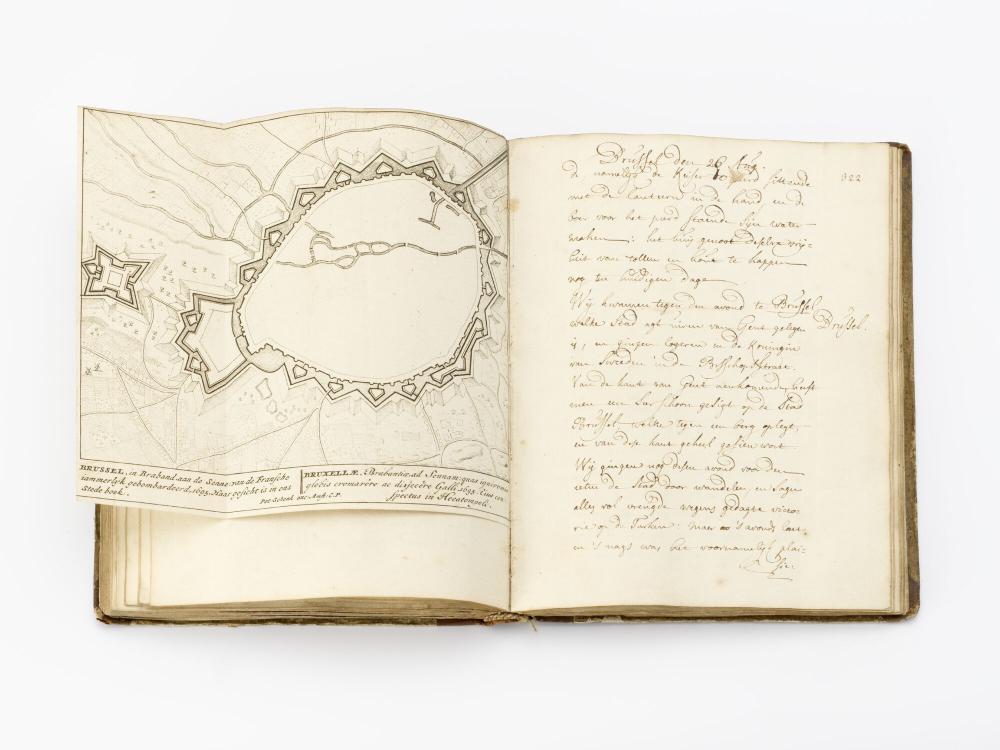 BRUSSEL, in Braband aan de Senne: van de Fransche
iammerlyk gebombardeerd, 1695. Haar gesicht is in ons
Stede boek.
BRUXELLÆ, Brabantiæ ad Sennam: quas ignivomis
globis cremarêre ac disjecêre Galli, 1695. Eius con,
spectus in Hecatompoli.
Pet: Schenk exc: Amst: C.P.
Brüssel den 26 Aug.
322
de Keijser te pard sittende
met de lantern in de hand en de
boer voor het pard staende sijn water
maken: het huij genoot deselve vrij-
heit van tollen en hout te happen
nog ten huidigen dage
Wij kwamen tegen den avont te Brüssel
Brüssel.
welke stad agt uiren van Gent gelegen
is, en gingen logeren in de Koningin
van Sweeden in de Bisschop straat.
Van de kant van Gent aenkomende, heeft
men een seer schoon gesigt op de Stad
Brüssel, welke tegen een berg oplegt,
en van dese kant geheel gesien wort.
Wij gingen nog desen avond voor den
eeten de Stad door wandelen, en sagen
alles vol vreugde wegens gedagte victo-
rie op de Turken: maer so 's avonds laet
en 's nagts was het voornamelijk plai-
sie: